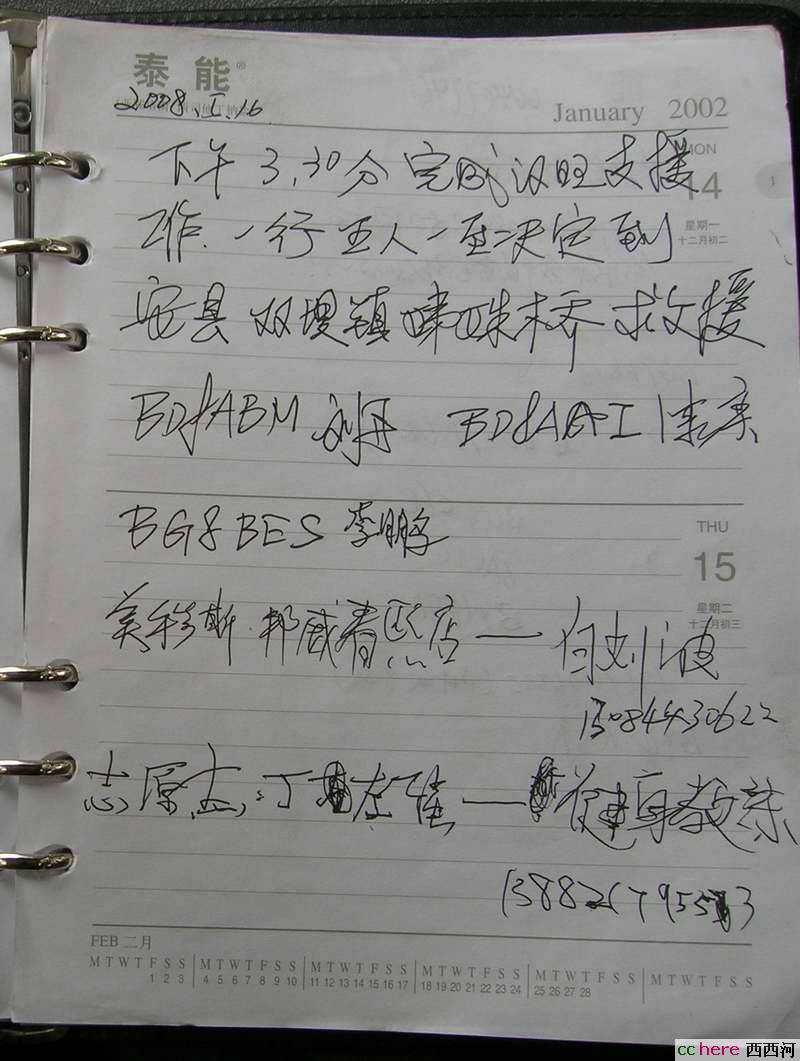 泰能®
2008.5.16
January 2002
下午3.30分 完成汉旺支援
MON
14
星期一
十二月初二
工作.一行五人一至决定到
安县 双堤镇 味咮木桥 救援
BD8ABM 刘丹 BD8AAI 陈东
THU
15
星期二
十二月初三
BG8BES 李鹏
美移斯.邦威春熙店——何刘波
15084430622
志原志:丁 左 ——健身教练
FEB 二月
M T W T F S S M T W T F S S M T W T F S S M T W T F S S M T W T F S S M T W T F S S
1 2 3 4 5 6 7 8 9 10 11 12 13 14 15 16 17 18 19 20 21 22 23 24 25 26 27 28
cchere 西西河